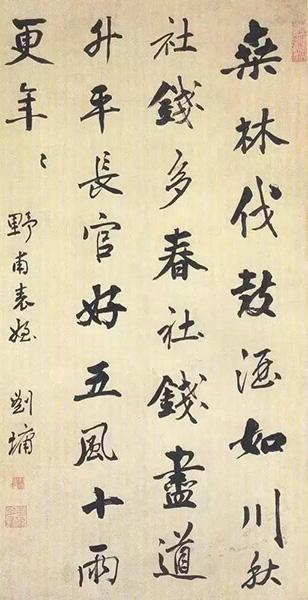 桒林伐鼓酒如川秋
社錢多春社錢盡道
升平長官好五風十雨
更年〻
野甫表姪 劉墉